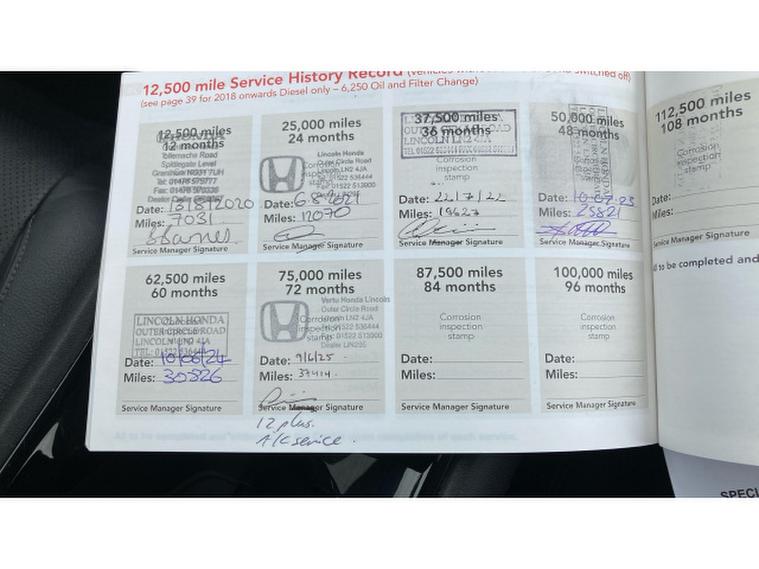 12,500 mile Service History Record
(see page 39 for 2018 onwards Diesel only – 6,250 Oil and Filter Change)
12,500 miles
12 months
Tollemache Road
Spittlegate Level
Grantham NG31 7UH
Date: 18/8/2020
Miles: 7031
Service Manager Signature
25,000 miles
24 months
Lincoln Honda
Outer Circle Road
Lincoln LN2 4JA
Tel: 01522 536444
Fax 01522 513900
Date: 6.8.2021
Miles: 12070
Service Manager Signature
37,500 miles
36 months
LINCOLN LN2 4JA
Corrosion
inspection
stamp
Date: 22/7/22
Miles: 19627
Service Manager Signature
50,000 miles
48 months
Date: 10-07-23
Miles: 25821
Service Manager Signature
112,500 miles
108 months
Corrosion
inspection
stamp
Date:
Miles:
Service Manager Signature
to be completed and
62,500 miles
60 months
LINCOLN HONDA
OUTER CIRCLE ROAD
LINCOLN LN2 4JA
Date: 10/06/24
Miles: 30826
Service Manager Signature
75,000 miles
72 months
Vertu Honda Lincoln
Outer Circle Road
Lincoln LN2 4JA
Tel: 01522 536444
Fax: 01522 513900
Date: 9/6/25.
Miles: 37414.
Service Manager Signature
12 plus.
A/C service.
87,500 miles
84 months
Corrosion
inspection
stamp
Date:
Miles:
Service Manager Signature
100,000 miles
96 months
Corrosion
inspection
stamp
Date:
Miles:
Service Manager Signature